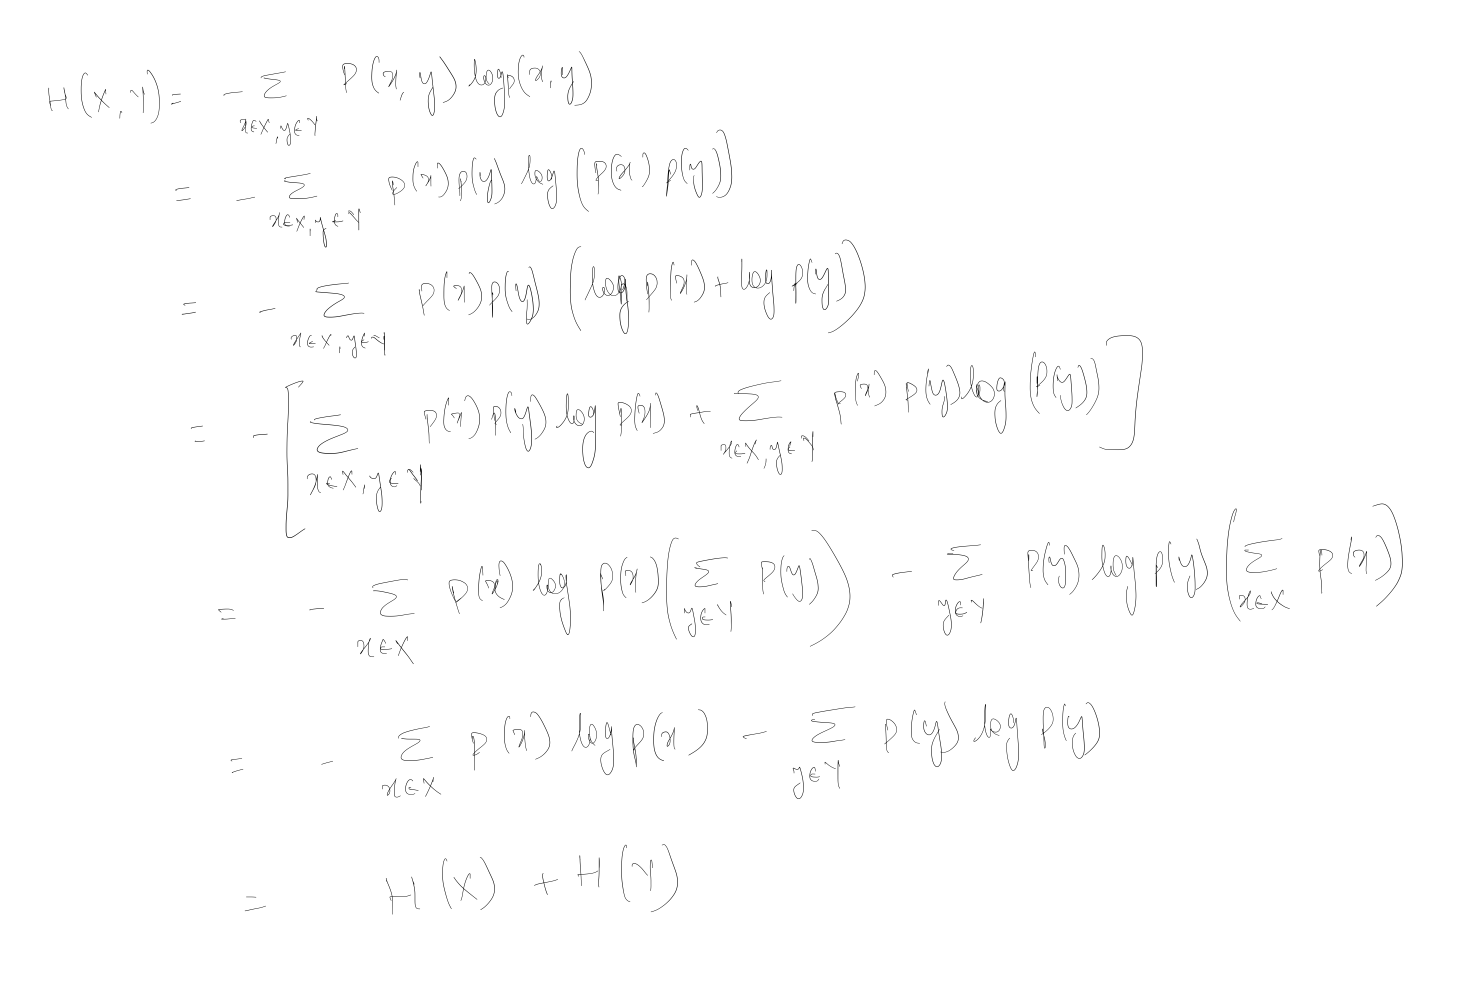 H(X,Y) = - Σ_{x∈X, y∈Y} P(x,y) log p(x,y)
= - Σ_{x∈X, y∈Y} p(x)p(y) log (P(x) p(y))
= - Σ_{x∈X, y∈Y} P(x)p(y) (log p(x) + log p(y))
= - [Σ_{x∈X, y∈Y} p(x)p(y) log p(x) + Σ_{x∈X, y∈Y} p(x) p(y) log (P(y))]
= - Σ_{x∈X} p(x) log p(x) (Σ_{y∈Y} P(y)) - Σ_{y∈Y} P(y) log p(y) (Σ_{x∈X} p(x))
= - Σ_{x∈X} p(x) log p(x) - Σ_{y∈Y} p(y) log p(y)
= H(X) + H(Y)